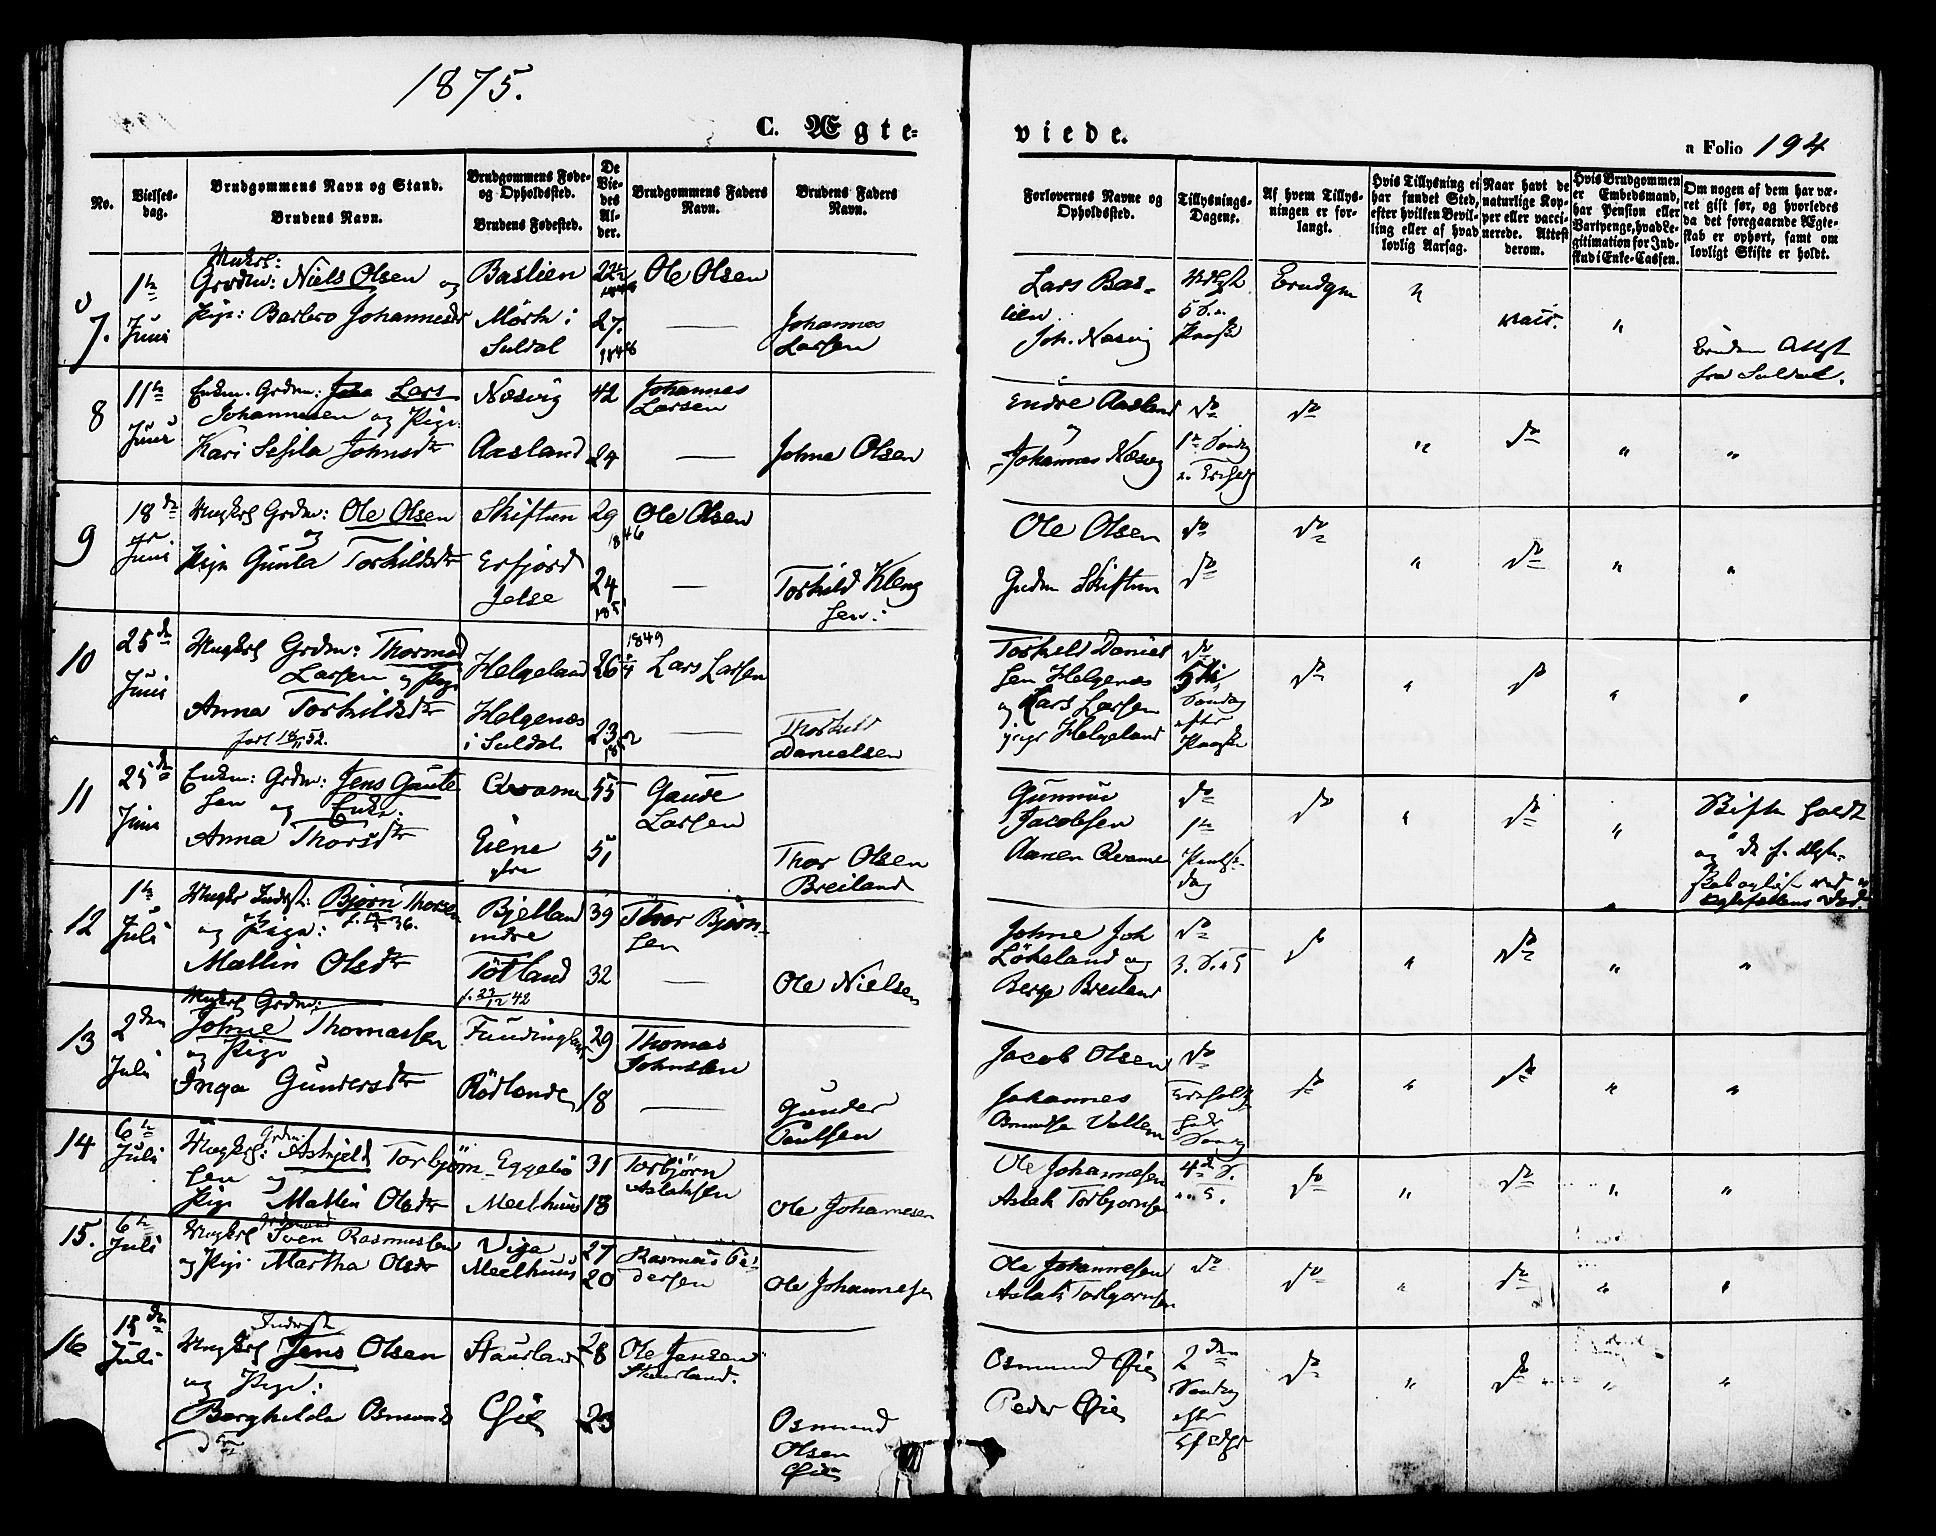 1875.
C. Ægte=
viede.
a Folio 194
No.
Vielses-
dag.
Brudgommens Navn og Stand.
Brudens Navn.
Brudgommens Føde-
og Opholdssted.
Brudens Fødested.
De
Vie-
des
Al-
der.
Brudgommens Faders
Navn.
Brudens Faders
Navn.
Forlovernes Navne og
Opholdssted.
Tillysnings-
Dagene.
Af hvem Tillys-
ningen er for-
langt.
Hvis Tillysning ei
har fundet Sted,
efter hvilken Bevil-
ling eller af hvad
lovlig Aarsag.
Naar havt de
naturlige Kop-
per eller vacci-
nerede. Attest
derom.
Hvis Brudgommen
er Embedsmand,
har Pension eller
Vartpenge, hvad Le-
gitimation for Ind-
skud i Enke-Cassen.
Om nogen af dem har væ-
ret gift før, og hvorledes
da det foregaaende Ægte-
skab er ophørt, samt om
lovligt Skifte er holdt.
7.
1te
Juni
Ungkrl:
Grdm: Niels Olsen og
Pige: Barbro Johannesdr
Bastien
Mørk i
Suldal
27.
1848
Ole Olsen
Johannes
Larsen
Lars Bas-
tien
Joh. Næsvig
5 S. e.
Paaske
Brudgm
"
vacc.
"
Bruden Attest
fra Suldal.
8
11te
Juni
Enkm. Grdm: Lars
Johannesen og Pige
Kari Sesila Johnsdtr
Næsvig
Aasland
42
24
Johannes
Larsen
Johne Olsen
Endre Aasland
og
Johannes Næsvig
do
1te Søndag
do
"
do
"
"
9
18de
Juni
Ungkrl Grdm: Ole Olsen
og
Pige Gunla Torkildsdtr
Skiftun
Erfjord
Jelse
29
1846
24
1851
Ole Olsen
Torkild Kleng
sen:
Ole Olsen
Gudm Skiftun
do
do
do
"
do
"
"
10
25de
Juni
Ungkrl Grdm: Thormod
Larsen og Pige
Anna Torkildsdtr
født 18/11 52.
Helgeland
Helgenæs
i Suldal
26
23
1852
1849
Lars Larsen
Thorkild
Danielsen
Torkild Daniel
sen Helgenæs
og Lars Larsen
Helgeland
do
5te
Søndag
efter
Paaske
do
"
do
"
"
11
25de
Juni
Enkm: Grdm: Jens Gaute
sen og Enke:
Anna Thorsdtr
Qvame
Eiene
øfre
55
51
Gaute
Larsen
Thor Olsen
Breiland
Gunnar
Jacobsen
Aanen Qvame
do
1te
Pintse-
dag
do
"
do
"
Skifte holdt
og
12
1te
Juli
Ungkr Inderst: Bjørn Thorsen
og Pige:
Mallin Olsdtr
Bjelland
indre
Tøtland
f. 29/12 42
39
32
Thor Bjørn-
sen
Ole Nielsen
Johne Joh
Løkeland og
Berge Breiland
do
do
"
do
"
"
13
2den
Juli
Ungkrl Grdm:
Johne Thomassen
og Pige
Inga Gundersdtr
Fundingland
Rødlande
29
18
Thomas
Johnsen
Gunder
Paulsen
Jacob Olsen
Johannes
Osmundsen Vallem
do
do
"
do
"
"
14
6te
Juli
Ungkrl: Grdm. Askjeld Torbjørn
sen og
Pige Mallin Olsdtr
Eggebø
Meelhuus
31
18
Torbjørn
Aslaksen
Ole Johannesen
Ole Johannesen
Aslak Torbjørnsen
4de S.
do
"
do
"
"
15.
6te
Juli
Ungkrl Grdmand Sven Rasmussen
og Pige Martha Olsdr
Viga
Meelhuus
27
20
Rasmus Pe
dersen
Ole Johannesen
Ole Johannesen
Aslak Torbjørnsen
do
do
"
do
"
"
16
15de
Juli
Inderst
Ungkrl Jens Olsen
og Pige:
Berghilda Osmunds
dtr
Staurland
Øie
28
23
Ole Jensen
Staurland.
Osmund
Olsen
Øie
Osmund Øie
Peder Øie
2den
Søndag
efter
do
"
do
"
"